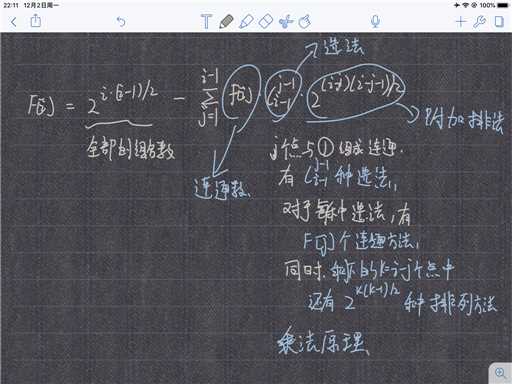 22:11 12月2日周一
100%
选法
F[i] = 2^{i·(i-1)/2} - \sum_{j=1}^{i-1} F[j] · C_{i-1}^{j-1} · 2^{(i-j)(i-j-1)/2}
全部的组合数
附加排法
连通数
j个点与①组成连通.
有 C_{i-1}^{j-1} 种选法,
对于每种选法,有
F[j]个连通方法,
同时.剩下的k=i-j个点中
还有 2^{k(k-1)/2} 种排列方法
乘法原理